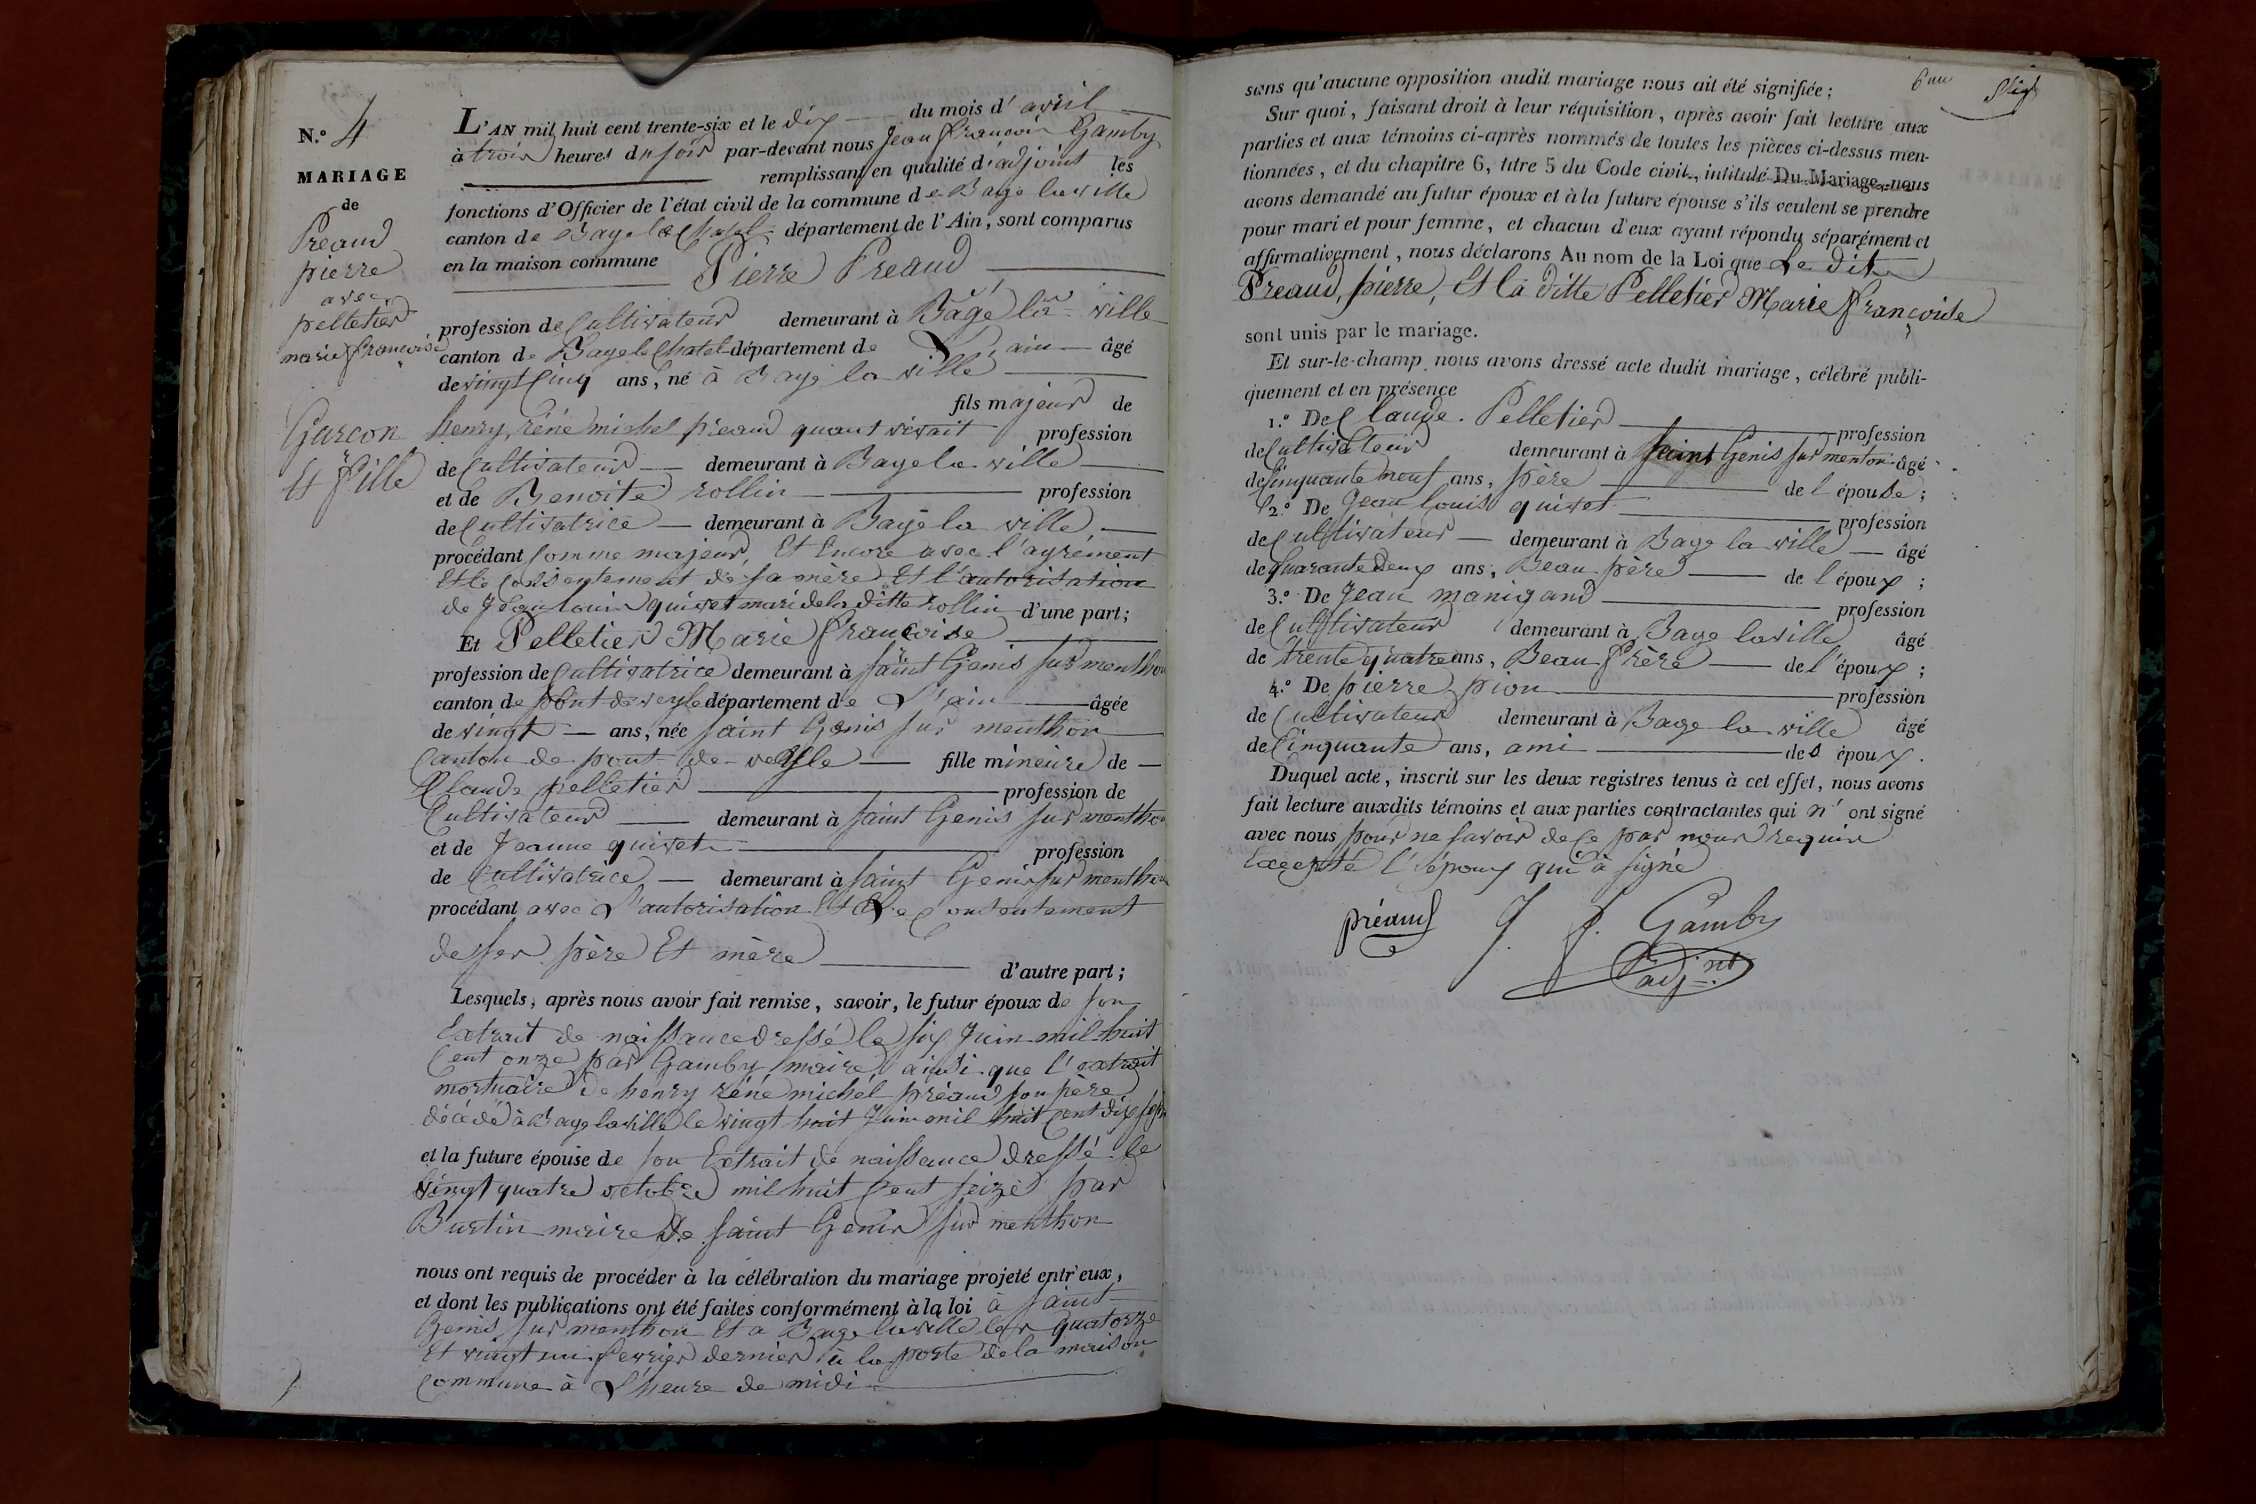 N.° 4
MARIAGE
de
Preaud
pierre
avec
pelletier
marie françoise
Garcon
Et fille
L'AN mil huit cent trente-six et le dix du mois d'avril
à trois heures du soir par-devant nous Jean françois Gamby
remplissant en qualité d'adjoint les
fonctions d'Officier de l'état civil de la commune de Bage la ville
canton de Bage le Chatel, département de l'Ain, sont comparus
en la maison commune Pierre Preaud
profession de Cultivateur demeurant à Bagé la ville
canton de Bage le Chatel département de L'ain âgé
de vingt Cinq ans, né à Bage la ville
fils majeur de
henry réné michel preaud quant vivait profession
de Cultivateur demeurant à Bage la ville
et de Benoite rollin profession
de Cultivatrice demeurant à Bagé la ville
procédant Comme majeur, Et Encore avec l'agrément
Et le Consentement de sa mère Et l'autorisation
de Jean louis quivet mari de la ditte rollin d'une part;
Et Pelletier Marie françoise
profession de Cultivatrice demeurant à saint Genis sur menthon
canton de pont de veyle département de L'ain âgée
de vingt ans, née saint Genis sur menthon
Canton de pont de veyle fille mineure de
Claude pelletier profession de
Cultivateur demeurant à saint Genis sur menthon
et de Jeanne quivet profession
de Cultivatrice demeurant à saint Genis sur menthon
procédant avec L'autorisation Et Le Consentement
de ses père Et mère d'autre part;
Lesquels, après nous avoir fait remise, savoir, le futur époux de son
Extrait de naissance dressé le six Juin mil huit
Cent onze par Gamby maire ainsi que l'extrait
mortuaire de henry réné michel préaud son père
décédé à Bage la ville le vingt huit Juin mil huit Cent dix sept
et la future épouse de son Extrait de naissance dressé le
vingt quatre octobre mil huit Cent seize par
Burtin maire de saint Genis sur menthon
nous ont requis de procéder à la célébration du mariage projeté entr'eux,
et dont les publications ont été faites conformément à la loi à saint
Genis sur menthon Et a Bage la ville les quatorze
Et vingt un fevrier dernier à la porte de la maison
Commune à L'heure de midi
sans qu'aucune opposition audit mariage nous ait été signifiée;
Sur quoi, faisant droit à leur réquisition, après avoir fait lecture aux
parties et aux témoins ci-après nommés de toutes les pièces ci-dessus men-
tionnées, et du chapitre 6, titre 5 du Code civil, intitulé Du Mariage, nous
avons demandé au futur époux et à la future épouse s'ils veulent se prendre
pour mari et pour femme, et chacun d'eux ayant répondu séparément et
affirmativement, nous déclarons Au nom de la Loi que Le dit
Preaud, pierre, Et la ditte Pelletier Marie françoise
sont unis par le mariage.
Et sur-le-champ nous avons dressé acte dudit mariage, célébré publi-
quement et en présence
1.° De Claude Pelletier profession
de Cultivateur demeurant à saint Genis sur menton âgé
de Cinquante neuf ans, père de l'épouse;
2.° De Jean louis quivet profession
de Cultivateur demeurant à Bage la ville âgé
de quarante deux ans, Beau père de l'époux;
3.° De Jean manigand profession
de Cultivateur demeurant à Bage la ville âgé
de trente quatre ans, Beau frère de l'époux;
4.° De pierre pion profession
de Cultivateur demeurant à Bage la ville âgé
de Cinquante ans, ami des époux.
Duquel acte, inscrit sur les deux registres tenus à cet effet, nous avons
fait lecture auxdits témoins et aux parties contractantes qui n'ont signé
avec nous pour ne savoir de Ce par nous requis
Excepté l'époux qui à signé
préaud J. f. Gamby
adj.nt